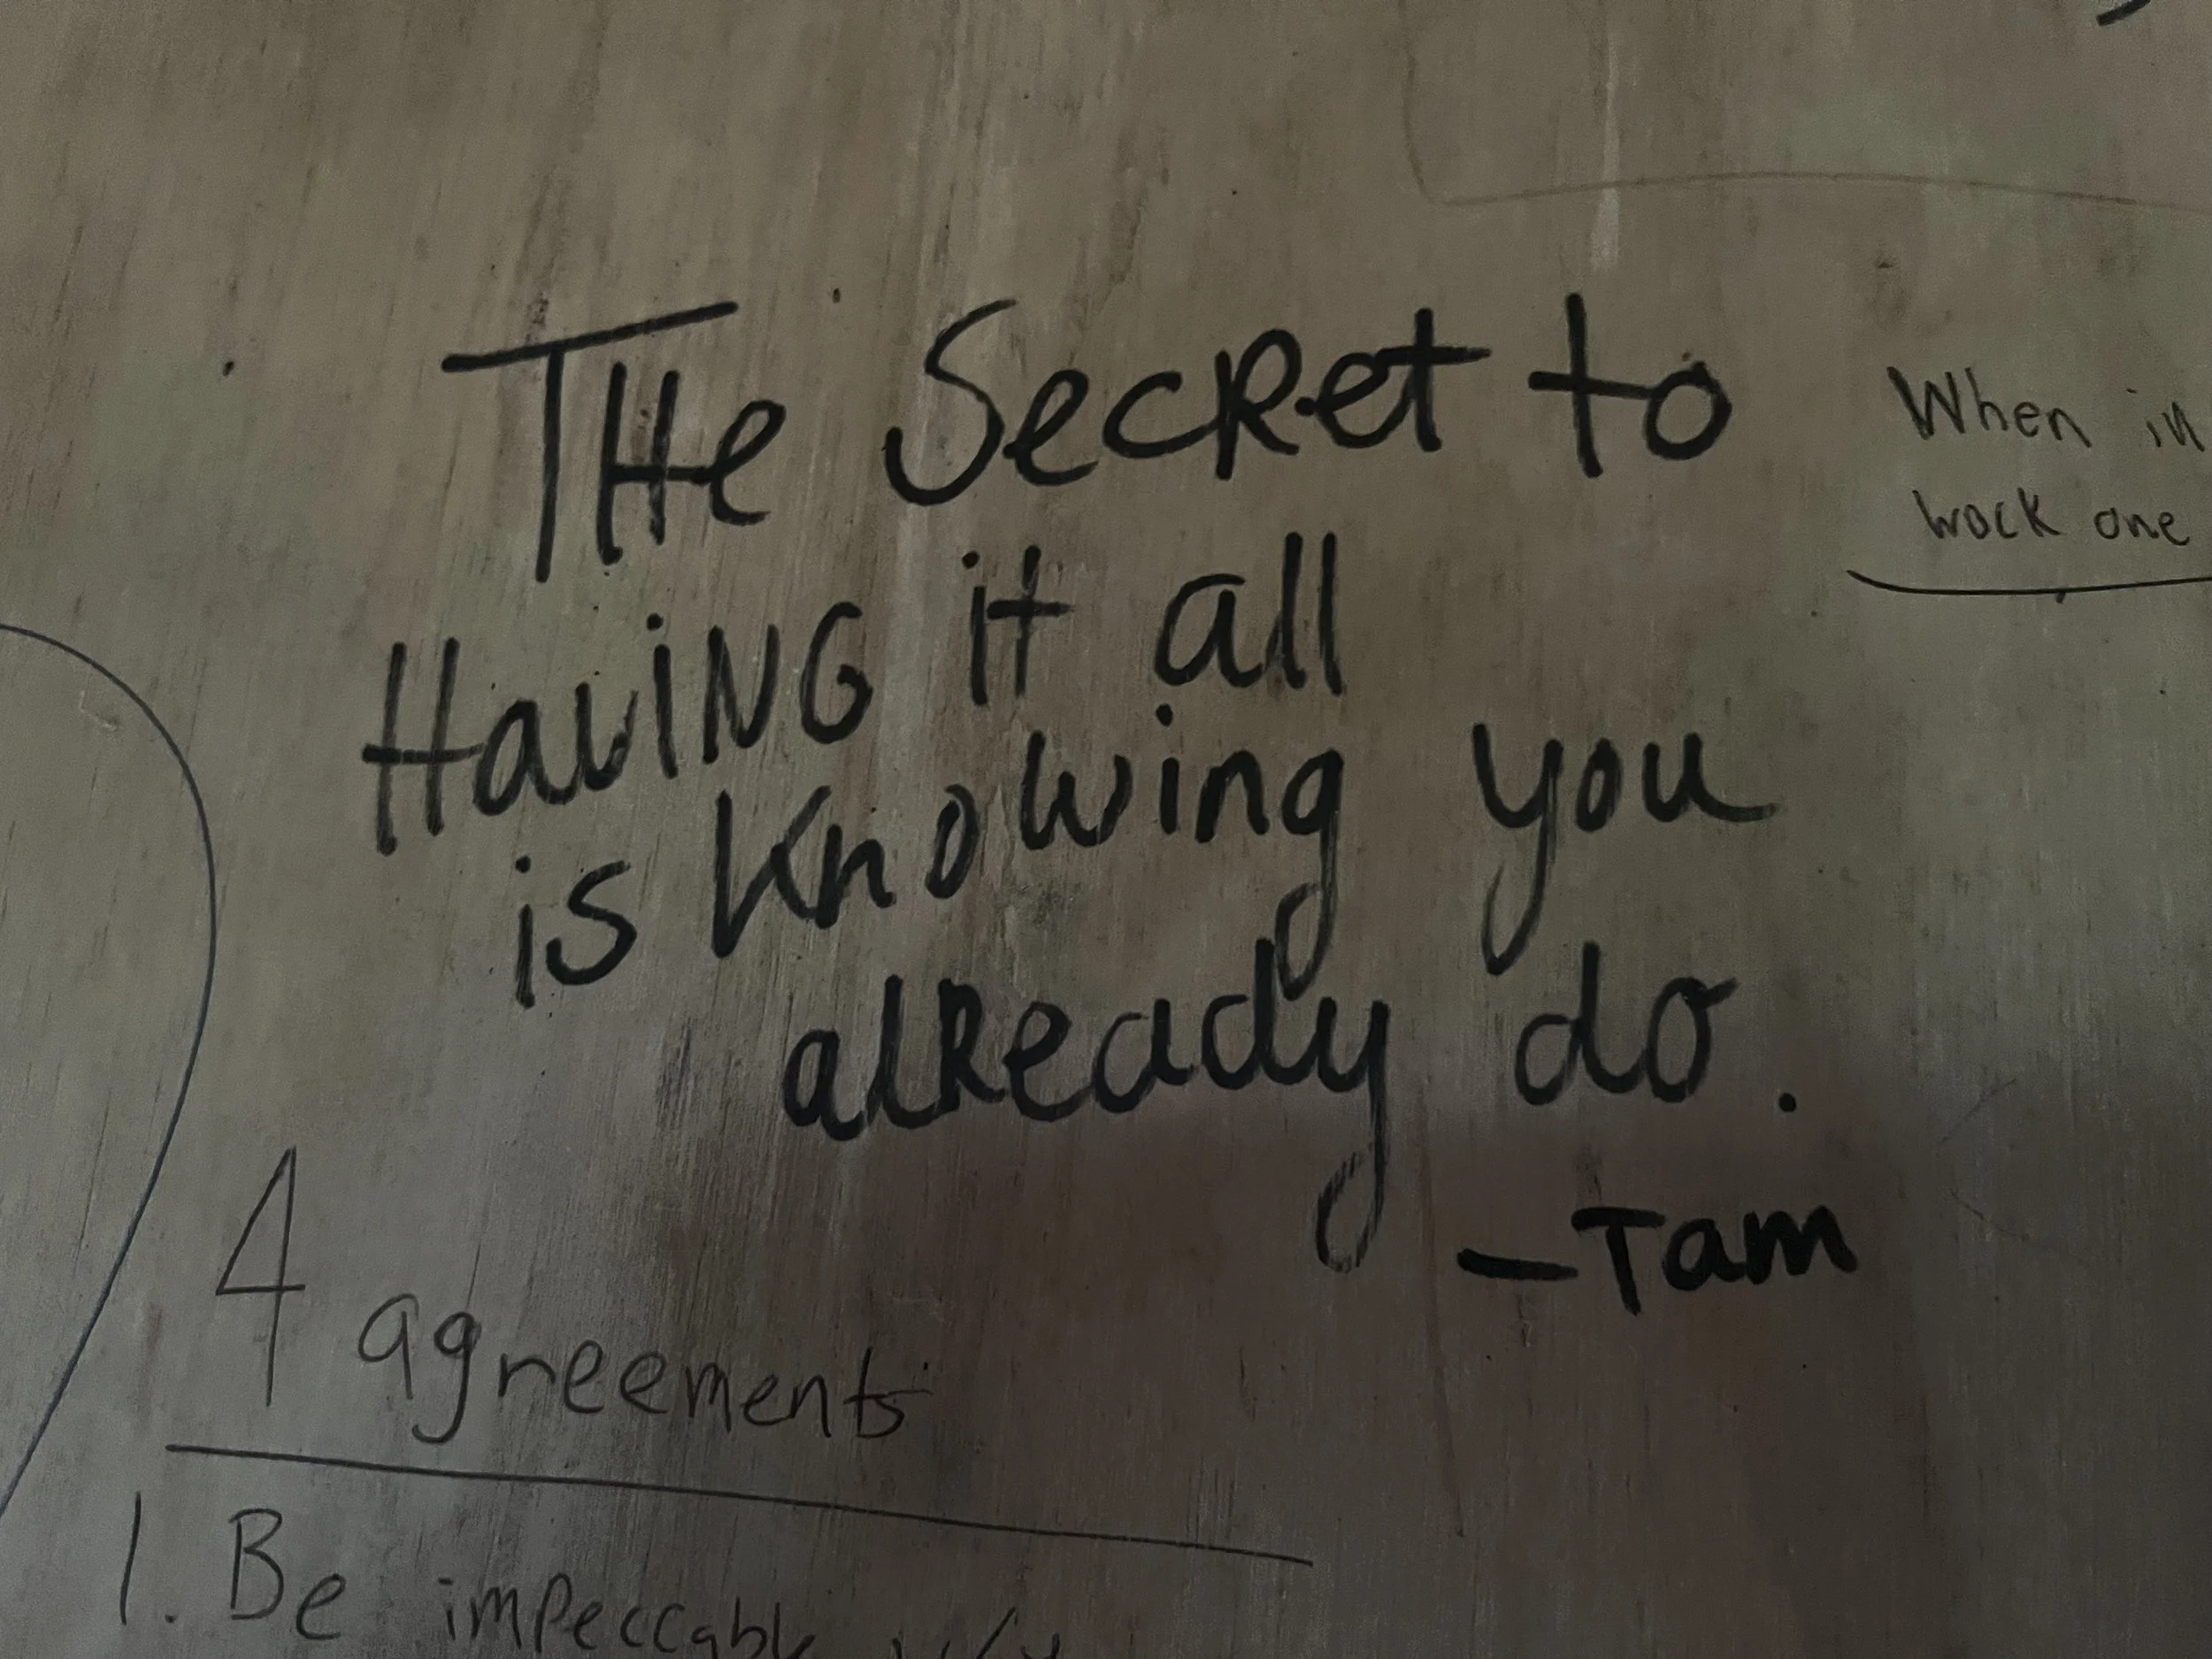 THe SecRet to
HaviNG it all
is Knowing you
alReady do.
-Tam
When in
wock one
4 agreements
1. Be impeccable